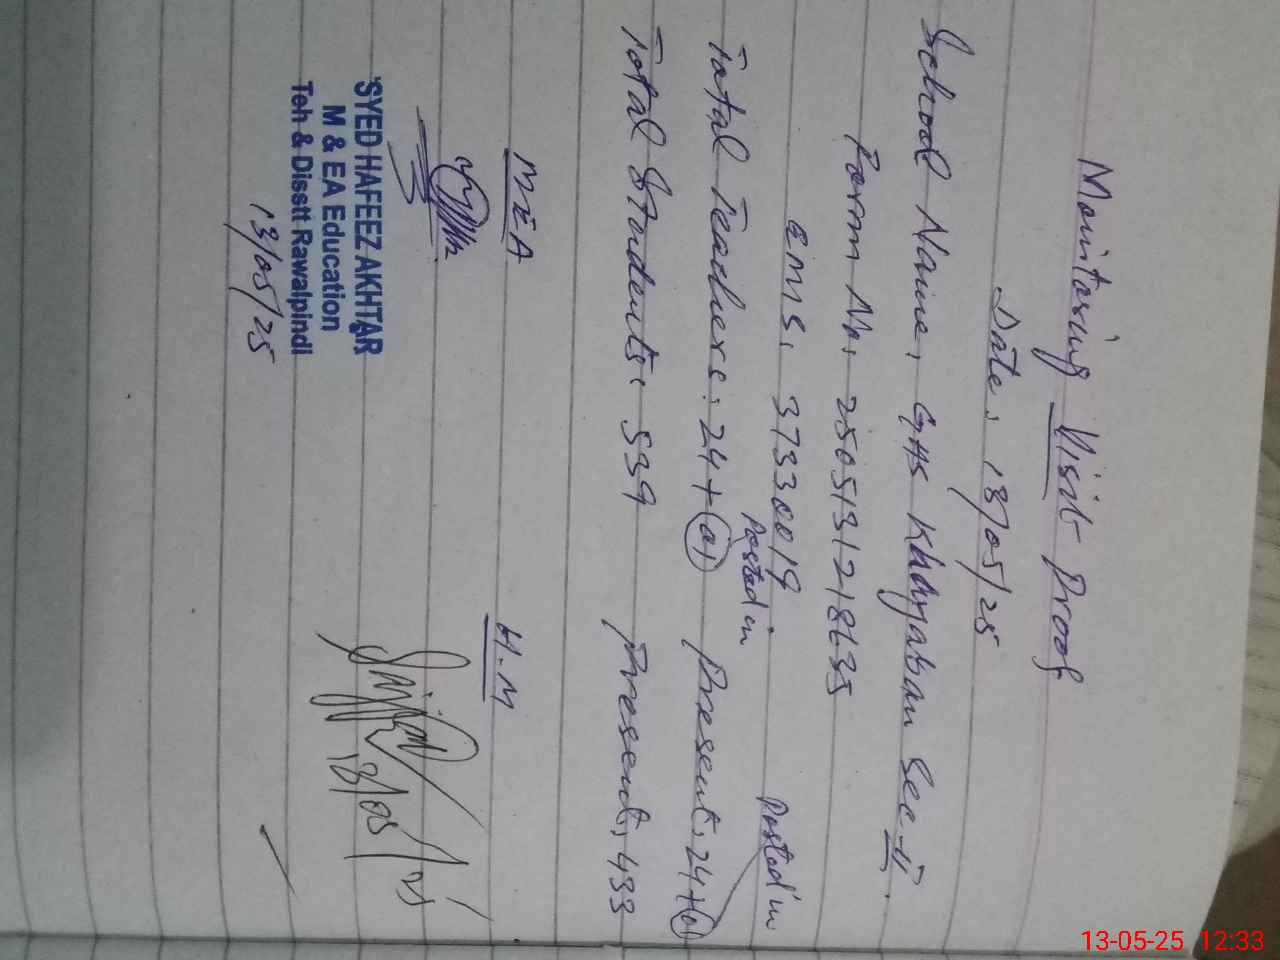 Monitoring Visit Proof
Date: 13/05/25
School Name: GHS Khayaban Sec-II.
Form No: 2505131218635
EMIS: 37330019
Posted in Posted in
Total Teachers: 24+01 Present: 24+01
Total Students: 539 Present: 433
MEA H.M
SYED HAFEEZ AKHTAR
M & EA Education
Teh & Disstt Rawalpindi
13/05/25
13/05/
13-05-25 12:33